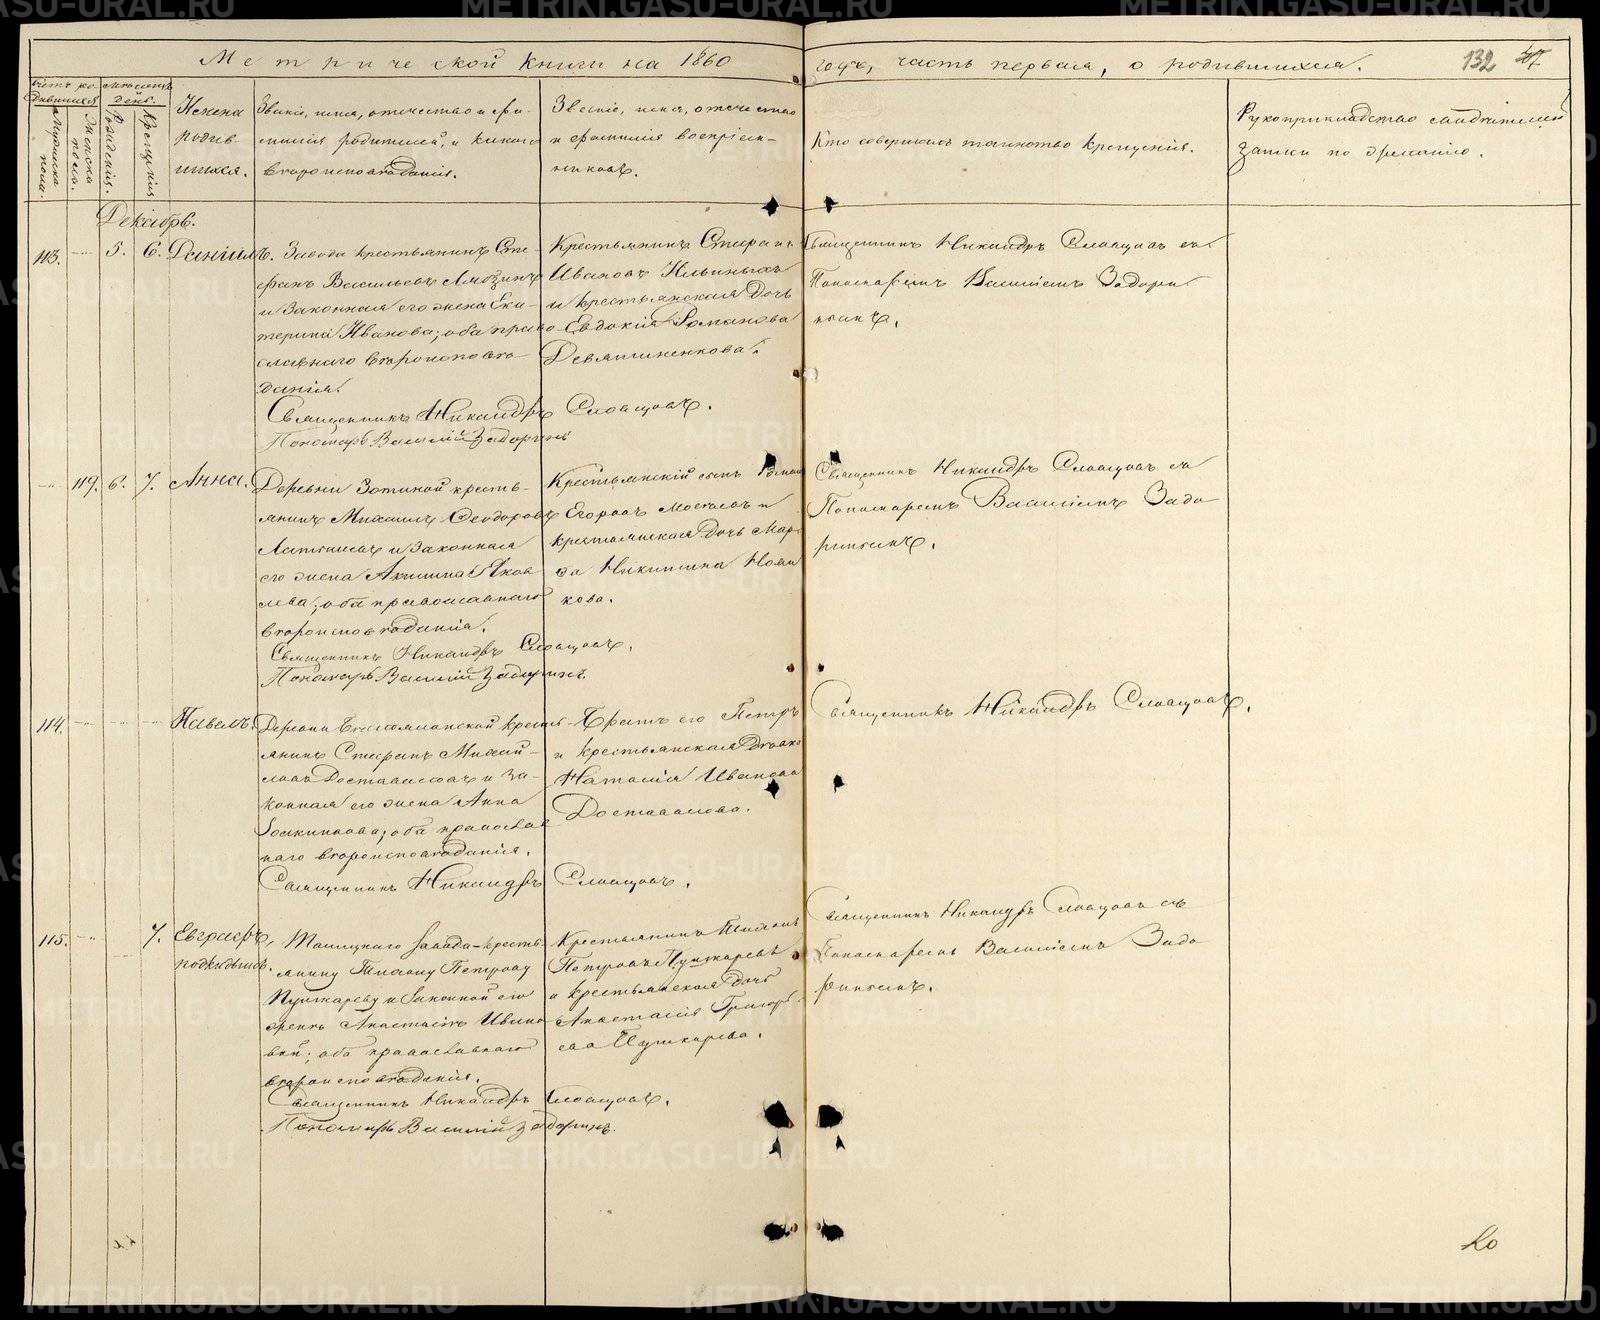 Метрической книги на 1860
годъ, часть первая, о родившихся.
132
Счетъ родившихся
Мужеска пола.
Женска пола.
Мѣсяцъ и день.
Рожденія.
Крещенія
Имена
родив-
шихся.
Званіе, имя, отчество и фа-
милія родителей, и какого
вѣроисповѣданія.
Званіе, имя, отчество
и фамилія воспріем-
никовъ.
Кто совершалъ таинство крещенія.
Рукоприкладство свидѣтелей
записи по желанію.
Декабрь.
113.
5.
6.
Даніилъ.
Завода крестьянинъ Сте-
фанъ Васильевъ
и законная его жена Ека-
терина Иванова; оба право-
славнаго вѣроисповѣ-
данія.
Священникъ Никандръ Словцовъ.
Пономарь Василій Задоринъ
Крестьянинъ
Ивановъ Ильиныхъ
и крестьянская дочь
Евдокія Романова
Девятиненкова.
Священникъ Никандръ Словцовъ съ
Пономаремъ Василіемъ Задори
нымъ.
119.
6.
7.
Анна.
Деревни Зотиной кресть-
янинъ Михаилъ Ѳеодоровъ
и законная
его жена Акилина Яков
лева; оба православнаго
вѣроисповѣданія.
Священникъ Никандръ Словцовъ.
Пономарь Василій Задоринъ.
Крестьянскій сынъ Роман
Егоровъ и
крестьянская дочь Мар
ѳа Никитина
кова.
Священникъ Никандръ Словцовъ съ
Пономаремъ Василіемъ Задо
ринымъ.
114.
Павелъ.
Деревни крест-
янинъ Стефанъ Михай-
ловъ Доставаловъ и за-
конная его жена Анна
оба православ
наго вѣроисповѣданія.
Священникъ Никандръ Словцовъ.
Братъ его Петръ
и крестьянская дѣвка
Наталія Иванова
Доставалова.
Священникъ Никандръ Словцовъ.
115.
7.
Евграфъ,
подкидышъ.
завода крестья-
янину Петрову
Пушкареву и законной его
женѣ Анастасіи Ивано
вой; оба православнаго
вѣроисповѣданія.
Священникъ Никандръ Словцовъ.
Пономарь Василій Задоринъ.
Крестьянинъ
Петровъ Пушкаревъ
и крестьянская дочь
Анастасія Григорь
ева Пушкарева.
Священникъ Никандръ Словцовъ съ
Пономаремъ Василіемъ Задо
ринымъ.
METRIKI.GASO-URAL.RU